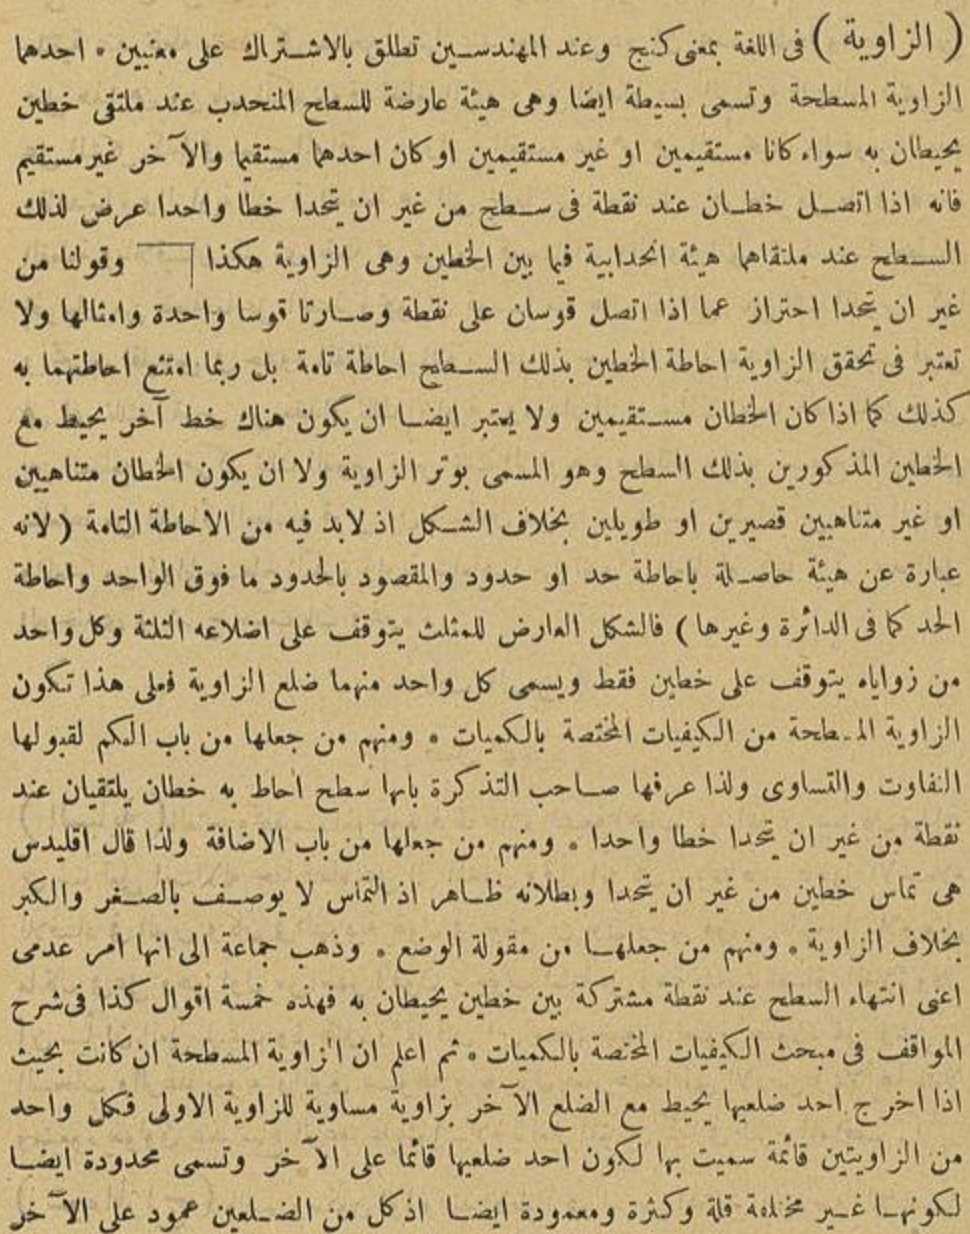 ( الزاوية ) فى اللغة بمعنى كنج وعند المهندسين تطلق بالاشتراك على معنيين ٠ احدهما
الزاوية المسطحة وتسمى بسيطة ايضا وهى هيئة عارضة للسطح المنحدب عند ملتقى خطين
يحيطان به سواء كانا مستقيمين او غير مستقيمين او كان احدهما مستقيما والآخر غير مستقيم
فانه اذا اتصل خطان عند نقطة فى سطح من غير ان يتحدا خطا واحدا عرض لذلك
السطح عند ملتقاهما هيئة انحدابية فيما بين الخطين وهى الزاوية هكذا وقولنا من
غير ان يتحدا احتراز عما اذا اتصل قوسان على نقطة وصارتا قوسا واحدة وامثالها ولا
تعتبر فى تحقق الزاوية احاطة الخطين بذلك السطح احاطة تامة بل ربما امتنع احاطتهما به
كذلك كما اذا كان الخطان مستقيمين ولا يعتبر ايضا ان يكون هناك خط آخر يحيط مع
الخطين المذكورين بذلك السطح وهو المسمى بوتر الزاوية ولا ان يكون الخطان متناهيين
او غير متناهيين قصيرين او طويلين بخلاف الشكل اذ لابد فيه من الاحاطة التامة ( لانه
عبارة عن هيئة حاصلة باحاطة حد او حدود والمقصود بالحدود ما فوق الواحد واحاطة
الحد كما فى الدائرة وغيرها ) فالشكل العارض للمثلث يتوقف على اضلاعه الثلثة وكل واحد
من زواياه يتوقف على خطين فقط ويسمى كل واحد منهما ضلع الزاوية فعلى هذا تكون
الزاوية المسطحة من الكيفيات المختصة بالكميات ٠ ومنهم من جعلها من باب الكم لقبولها
التفاوت والتساوى ولذا عرفها صاحب التذكرة بانها سطح احاط به خطان يلتقيان عند
نقطة من غير ان يتحدا خطا واحدا ٠ ومنهم من جعلها من باب الاضافة ولذا قال اقليدس
هى تماس خطين من غير ان يتحدا وبطلانه ظاهر اذ التماس لا يوصف بالصغر والكبر
بخلاف الزاوية ٠ ومنهم من جعلها من مقولة الوضع ٠ وذهب جماعة الى انها امر عدمى
اعنى انتهاء السطح عند نقطة مشتركة بين خطين يحيطان به فهذه خمسة اقوال كذا فى شرح
المواقف فى مبحث الكيفيات المختصة بالكميات ٠ ثم اعلم ان الزاوية المسطحة ان كانت بحيث
اذا اخرج احد ضلعيها يحيط مع الضلع الآخر بزاوية مساوية للزاوية الاولى فكل واحد
من الزاويتين قائمة سميت بها لكون احد ضلعيها قائما على الآخر وتسمى محدودة ايضا
لكونها غير مختلفة قلة وكثرة ومعمودة ايضا اذ كل من الضلعين عمود على الآخر